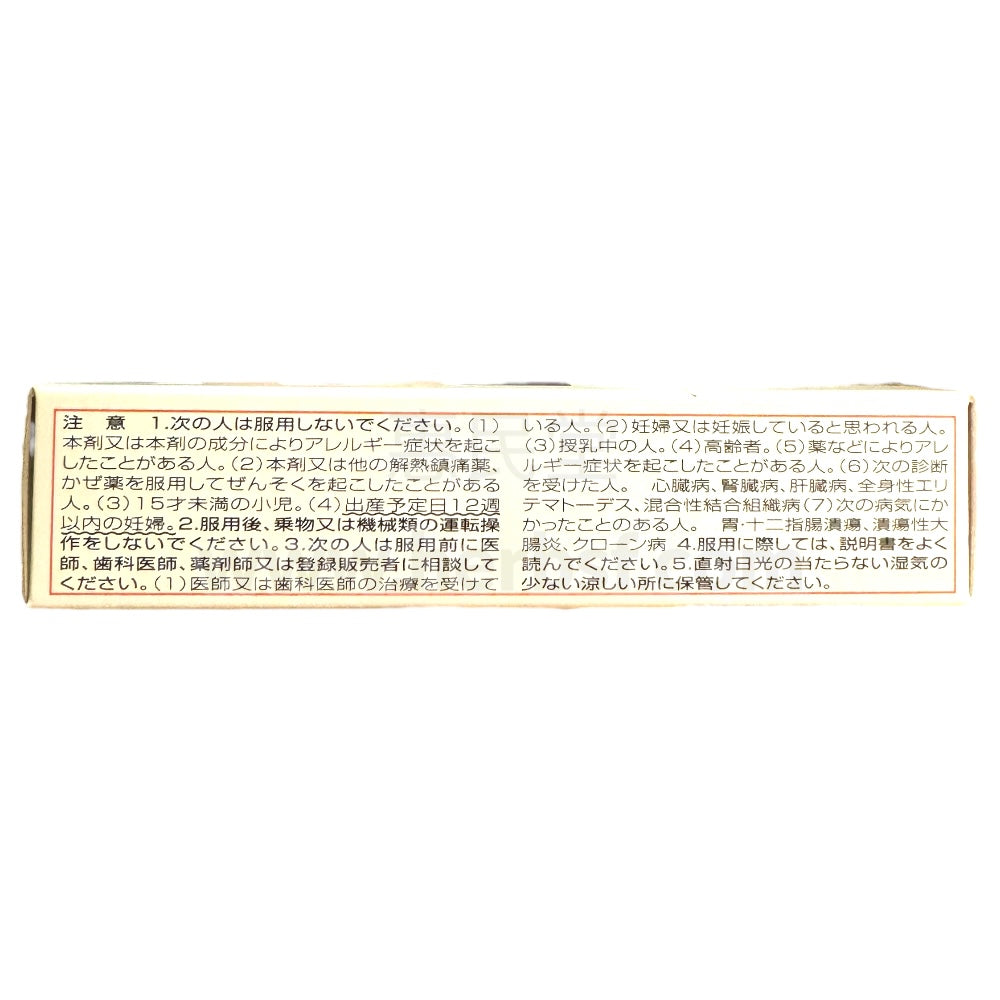 注 意 1.次の人は服用しないでください。(1)
本剤又は本剤の成分によりアレルギー症状を起こ
したことがある人。(2)本剤又は他の解熱鎮痛薬、
かぜ薬を服用してぜんそくを起こしたことがある
人。(3)15才未満の小児。(4)出産予定日12週
以内の妊婦。2.服用後、乗物又は機械類の運転操
作をしないでください。3.次の人は服用前に医
師、歯科医師、薬剤師又は登録販売者に相談して
ください。(1)医師又は歯科医師の治療を受けて
いる人。(2)妊婦又は妊娠していると思われる人。
(3)授乳中の人。(4)高齢者。(5)薬などによりアレ
ルギー症状を起こしたことがある人。(6)次の診断
を受けた人。 心臓病、腎臓病、肝臓病、全身性エリ
テマトーデス、混合性結合組織病(7)次の病気にか
かったことのある人。 胃・十二指腸潰瘍、潰瘍性大
腸炎、クローン病 4.服用に際しては、説明書をよく
読んでください。5.直射日光の当たらない湿気の
少ない涼しい所に保管してください。